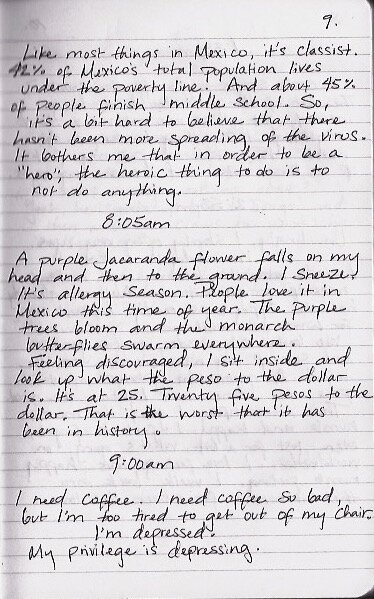 9.
Like most things in Mexico, it's classist.
42% of Mexico's total population lives
under the poverty line. And about 45%
of people finish middle school. So,
it's a bit hard to believe that there
hasn't been more spreading of the virus.
It bothers me that in order to be a
"hero", the heroic thing to do is to
not do anything.
8:05am
A purple Jacaranda flower falls on my
head and then to the ground. I sneeze.
It's allergy season. People love it in
Mexico this time of year. The purple
trees bloom and the monarch
butterflies swarm everywhere.
Feeling discouraged, I sit inside and
look up what the peso to the dollar
is. It's at 25. Twenty five pesos to the
dollar. That is the worst that it has
been in history.
9:00am
I need coffee. I need coffee so bad,
but I'm too tired to get out of my chair.
I'm depressed.
My privilege is depressing.